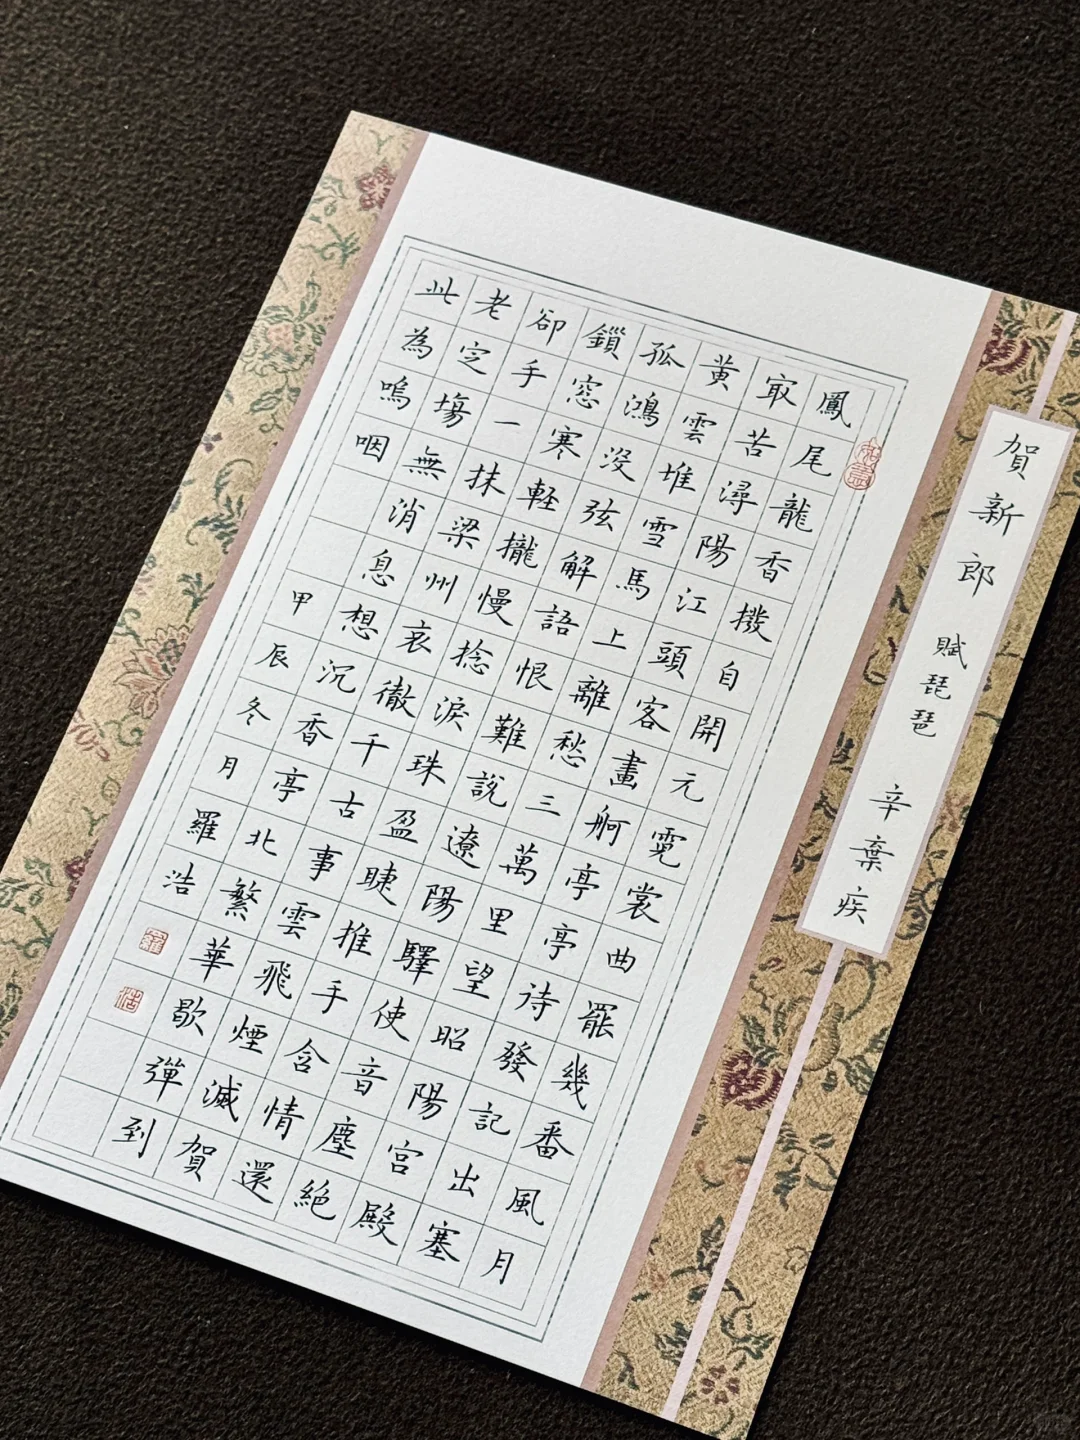 賀新郎 賦琵琶 辛棄疾
鳳尾龍香撥自開元霓裳曲罷幾番風月
冣苦潯陽江頭客畫舸亭亭待發記出塞
黃雲堆雪馬上離愁三萬里望昭陽宮殿
孤鴻沒弦解語恨難說遼陽驛使音塵絕
鎖窓寒軽攏慢捻淚珠盈睫推手含情還
卻手一抹梁州哀徹千古事雲飛煙滅賀
老定塲無消息想沉香亭北繁華歇彈到
此為嗚咽 甲辰冬月羅浩
羅
浩